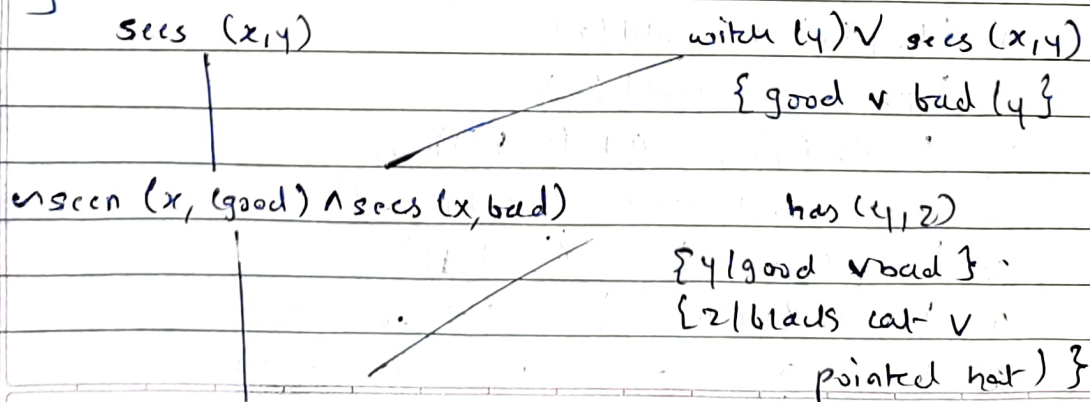 sees (x,y)   witch (y) V sees (x,y)
{ good v bad (y }
~seen (x, (good) ∧ sees (x, bad)   has (y, z)
{ y / good v bad }
{ z / black cat v
pointed hat ) }